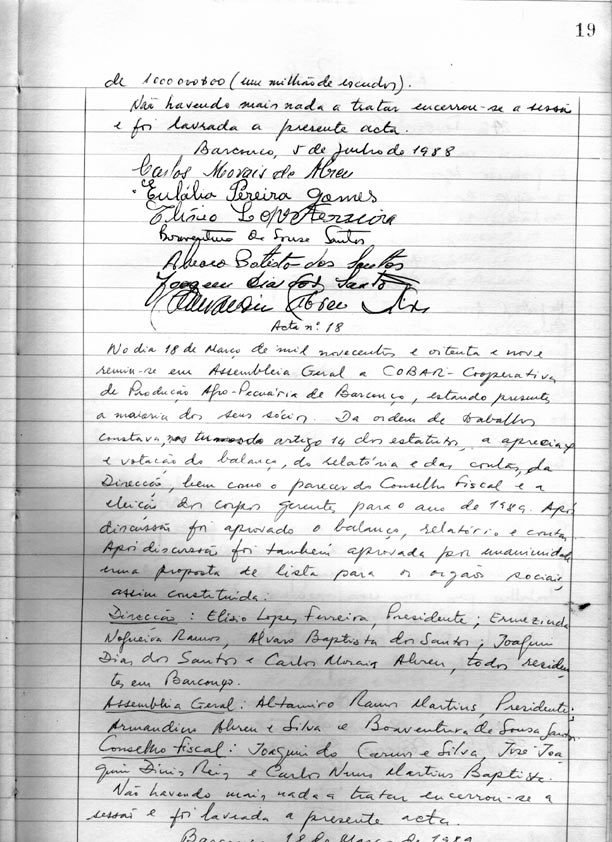 19
de 1.000.000$00 (um milhão de escudos).
Não havendo mais nada a tratar encerrou-se a sessão
e foi lavrada a presente acta.
Barcouço, 5 de Junho de 1988
Carlos Morais de Abreu
Eulália Pereira Gomes
Elísio Lopes Ferreira
Boaventura de Sousa Santos
Alvaro Batista dos Santos
Joaquim Dias dos Santos
Abreu e Silva
Acta nº 18
No dia 18 de Março de mil novecentos e oitenta e nove
reuniu-se em Assembleia Geral a COBAR - Cooperativa
de Produção Agro-Pecuária de Barcouço, estando presente
a maioria dos seus sócios. Da ordem de trabalhos
constava, nos termos do artigo 14 dos estatutos, a apreciação
e votação do balanço, do relatório e das contas, da
Direcção, bem como o parecer do Conselho Fiscal e a
eleição dos corpos gerentes para o ano de 1989. Após
discussão foi aprovado o balanço, relatório e contas.
Após discussão foi também aprovada por unanimidade
uma proposta de lista para os orgãos sociais,
assim constituída:
Direcção: Elísio Lopes Ferreira, Presidente; Ermezinda
Nogueira Ramos, Alvaro Baptista dos Santos; Joaquim
Dias dos Santos e Carlos Morais Abreu, todos residen-
tes em Barcouço.
Assembleia Geral: Altamiro Ramos Martins, Presidente;
Armandino Abreu e Silva e Boaventura de Sousa Santos
Conselho Fiscal: Joaquim do Carmo e Silva, José Joa-
quim Dinis Reis e Carlos Nuno Martins Baptista.
Não havendo mais nada a tratar encerrou-se a
sessão e foi lavrada a presente acta.
Barcouço, 18 de Março de 1989